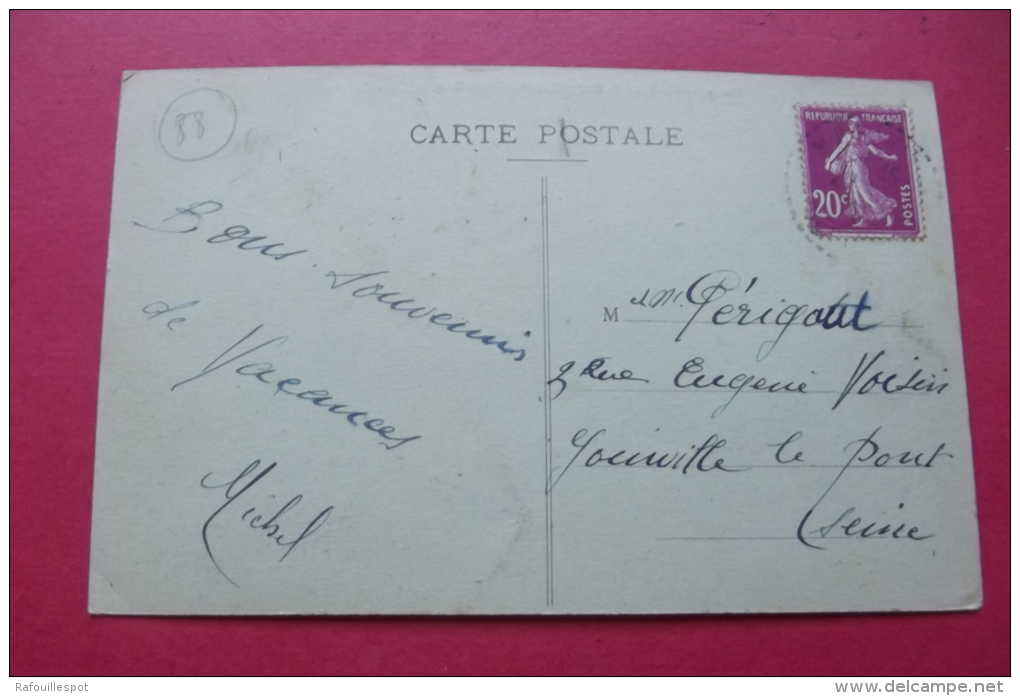 88
CARTE POSTALE
REPUBLIQUE FRANÇAISE
20c
POSTES
Bons souvenirs
de Vacances
Michel
M Périgault
2 Rue Eugene Voisin
Joinville le Pont
Seine
Rafouillespot
www.delcampe.net